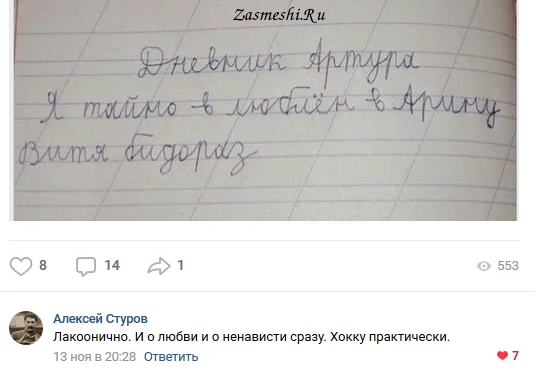 Zasmeshi.Ru
Дневник Артура
Я тайно в люблён в Арину
Витя бидораз
8 14 1 553
Алексей Стуров
Лакоонично. И о любви и о ненависти сразу. Хокку практически.
13 ноя в 20:28 Ответить 7